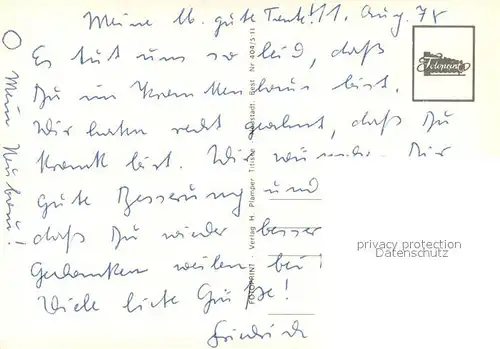 Meine lb. gute Tante! 1. Aug. 78
Es tut uns so leid, daß
Du im Krankenhaus bist.
Wir haben nicht geahnt, daß Du
krank bist. Wir wünschen Dir
gute Besserung und
daß Du wieder besser
Gedanken weilen bei
Viele liebe Grüße!
Friedrich
Mein
Fotoprint
FOTOPRINT - Verlag H. Plamper Titisee Best. Nr. 404/511
privacy protection
Datenschutz